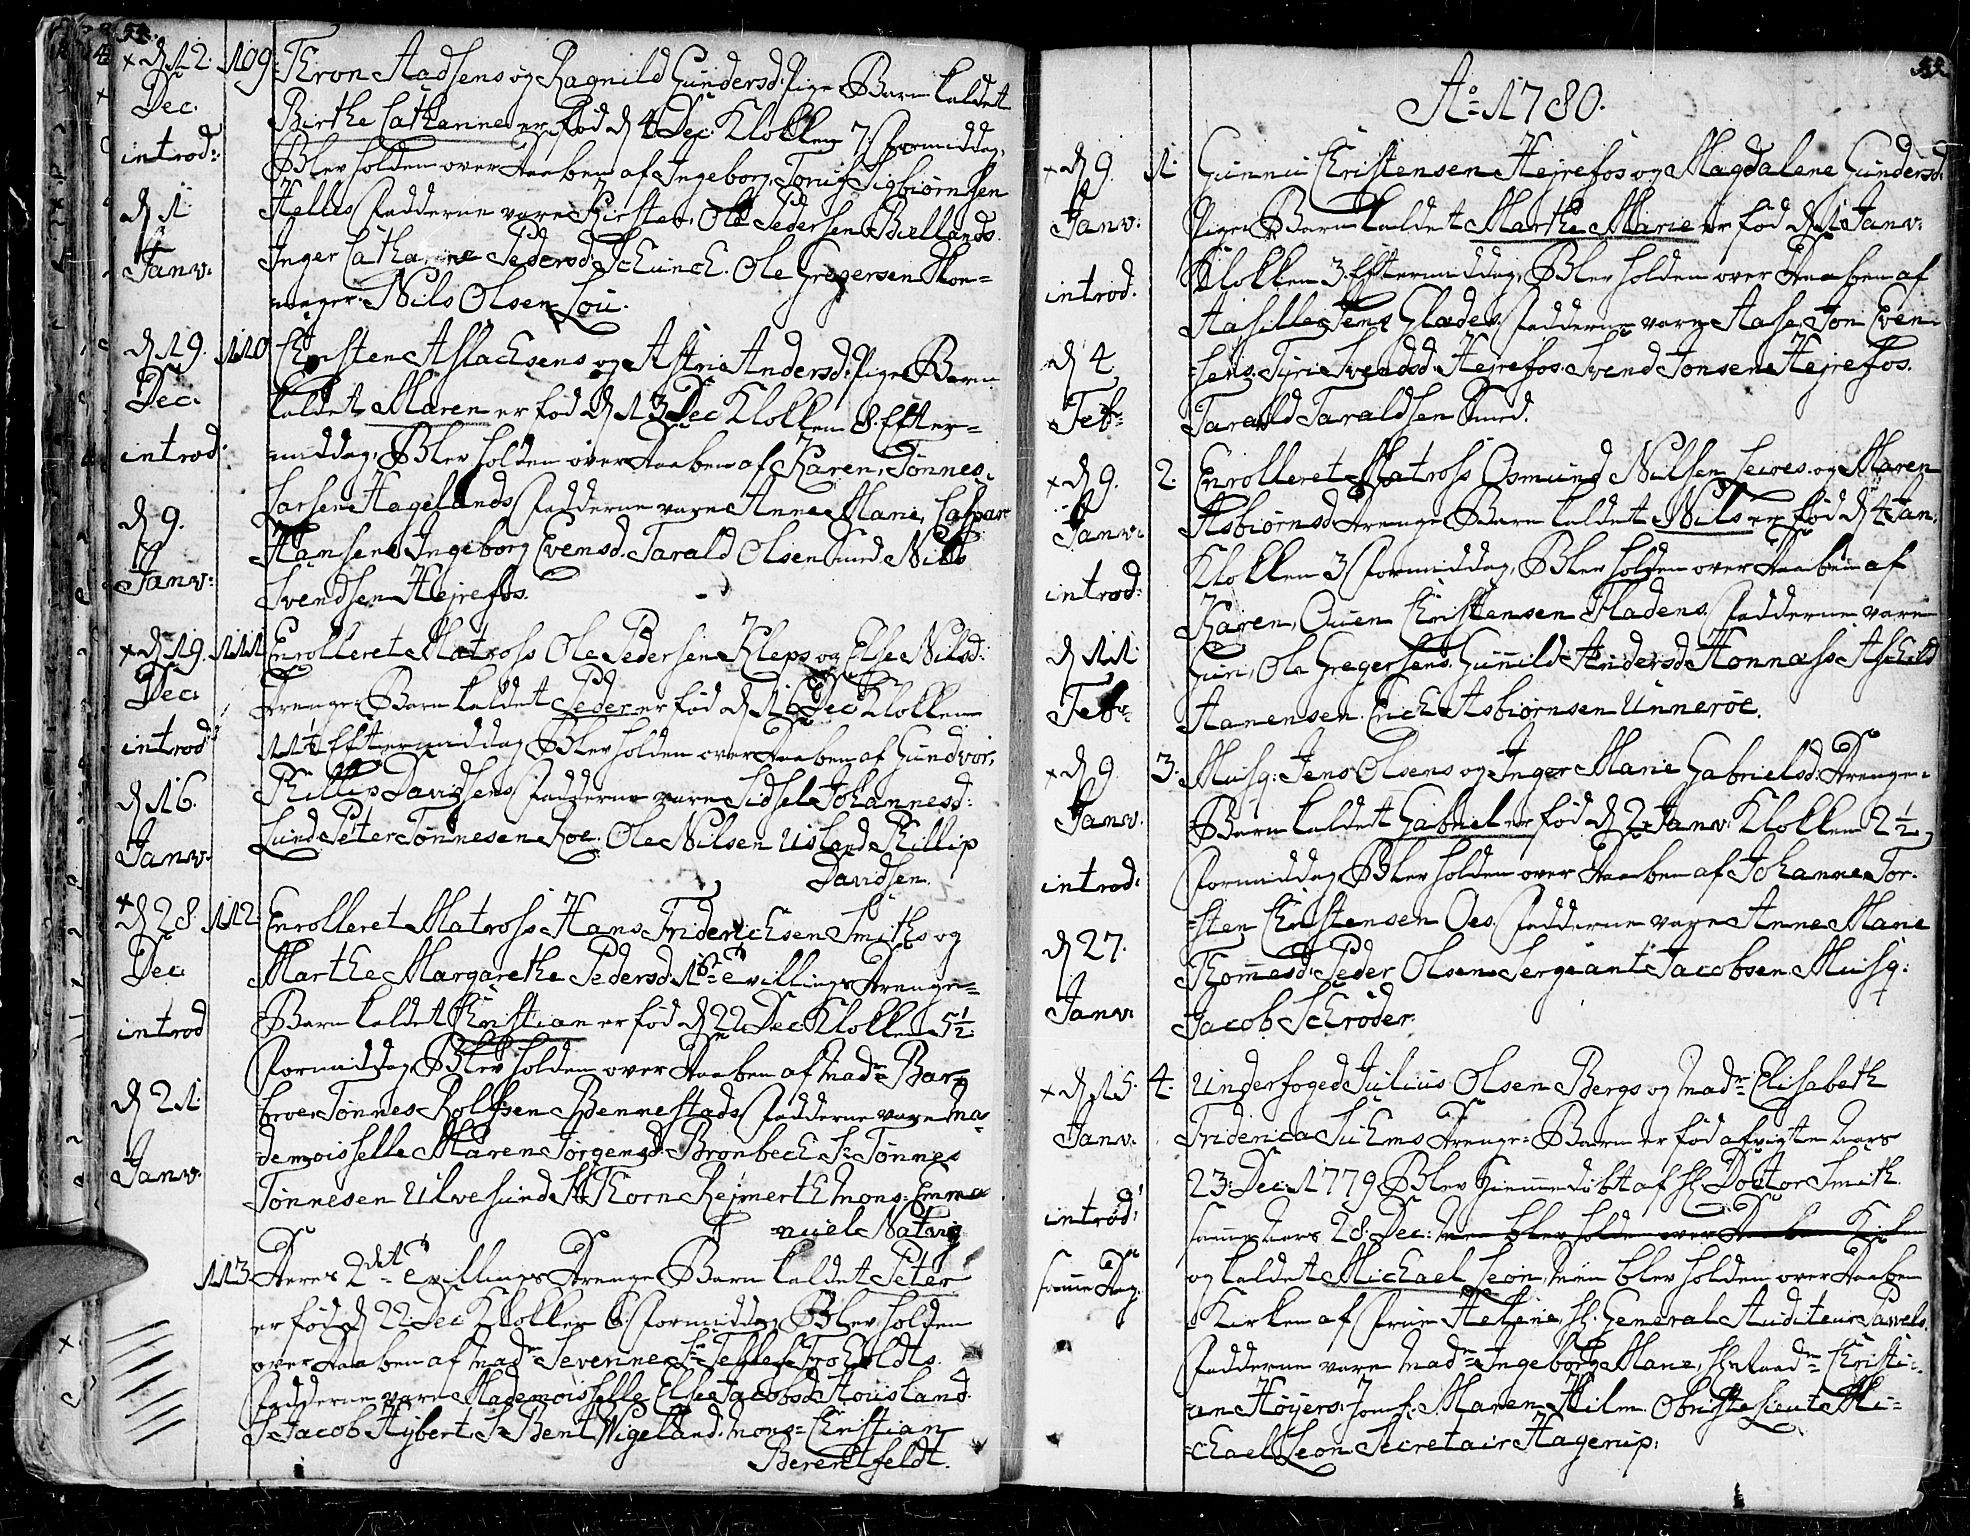 54.
× d 12. Dec. introd: d 1 Janv:
109. Thron Aadsens og Ragnild Gundersd: Pige Barn kaldet
Birthe Catharine er fød d 4 Dec. Klokken 7 Formiddag,
Blev holden over Daaben af Ingeborg, Tonns Sigbiørnsen
Kelles Fadderne vare Kirsten, Ole Pedersen Biellands
Inger Catharine Pedersd. Schunck. Ole Gregersen Hon=
Nils Olsen Lou.
d 19. Dec. introd: d 9. Janv:
110 Christen Aslachsens og Astri Andersd: Pige Barn
kaldet Maren er fød d 13 Dec Klokken 8. Efter=
middag, Blev holden over Daaben af Karen, Tønnes
Larsen Hagelands Fadderne vare Anne Marie, Caspar
Hansens Ingeborg Evensd. Tarald Olsen Smed Nils
Svendsen Hejrefos.
× d 19. Dec. introd: d 16. Janv:
111 Enrolleret Matross Ole Pedersen Kleps og Else Nilsd:
Drenge Barn kaldet Peder er fød d 16 Dec Klokken
11½ Eftermiddag Blev holden over Daaben af Gundvor,
Phillip Davidsens Fadderne vare Sidsel Johannesd:
Lund Peter Tønnesen Roe. Ole Nilsen Usland Phillip
Davidsen.
× d 28. Dec introd d 21. Janv:
112. Enrolleret Matross Hans Friderichsen Smiths og
Marthe Margarethe Pedersd. 1ste Tvillings Drenge=
Barn kaldet Christian er fød d 22 Dec Klokken 5½
Formiddag Blev holden over Daaben af Made Bar=
broe Tønnes Rolfsen Bennestads Fadderne vare Ma=
demoisselle Maren Jørgensd. Bronbech Sr Tønnes
Tønnesen Ulvesund Sr Thorn Rejmerth Mons: Emma=
nuel Natvig
113 Deres 2det Tvillings Drenge Barn kaldet Peter
er fød d 22 Dec Klokken 6. Formiddag Blev holden
over Daaben af Made Severine Sr Tellef Froholdts.
Fadderne vare Mademoisselle Else Jacobsd. Housland.
Sr Jacob Hybert. Sr Bent Wigeland. Mons= Christian
Berentfeldt.
55.
Ao 1780.
× d 9. Janv: introd. d 4 Febr
1. Gunnu Christensen Hejrefos og Magdalene Gundersd:
Pige Barn kaldet Marthe Marie er fød d 1 Janv:
Klokken 3. Eftermiddag, Blev holden over Daaben af
Aasille, Jens Glades. Fadderne vare Aase, Jon Even
sens. Syri Svendsd. Hejrefos. Svend Jonsen Hejrefos.
Tarald Taraldsen Smed.
× d 9. Janv: introd: d 11 Febr
2. Enrolleret Matross Osmund Nilsen Seires og Maren
Asbiørnsd. Drenge Barn kaldet Nils er fød d 4 Jan:
Klokken 3 Formiddag, Blev holden over Daaben af
Karen, Ouen Christensen Fladens. Fadderne vare
Guri, Ole Gregersens. Gunnild Andersd. Honnæss Aschild
Aanensen. Erich Asbiørnsen Unnerøe.
× d 9. Janv. introd: d 27. Janv:
3. Musq: Jens Olsens og Inger Marie Gabrielsd: Drenge=
Barn kaldet Gabriel er fød d 2 Janv: Klokken 2½
Formiddag Blev holden over Daaben af Johanne Tor=
sten Christensen Oes. Fadderne vare Anne Marie
Thomesd: Peder Olsen. Sergiant Jacobsen. Musq:
Jacob Schrøder.
× d 15. Janv. introd: samme Dag.
4. Underfoged Julius Olsen Bergs og Made Elisabeth
Friderica Suhms Drenge= Barn er fød afvigte Aars
23. Dec. 1779 Blev Hiemmedøbt af H: Doctor Smith.
samme Aars 28. Dec: men blev holden over Daaben Kirken
og kaldet Michael Leon, men blev holden over Daaben
Kirken af Frue Helene, H: General Auditeur Pawels.
Fadderne vare Made Ingeborg Marie, Christi=
an Høyers. Jomf: Maren Film. Obriste Lieut Mi=
chael Leon. Secretair Hagerup.